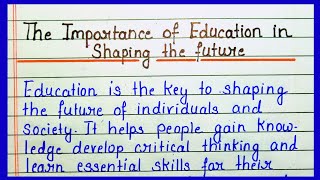 The Importance of Education in
Shaping the future
Education is the key to shaping
the future of individuals and
society. It helps people gain know-
ledge develop critical thinking and
learn essential skills for their